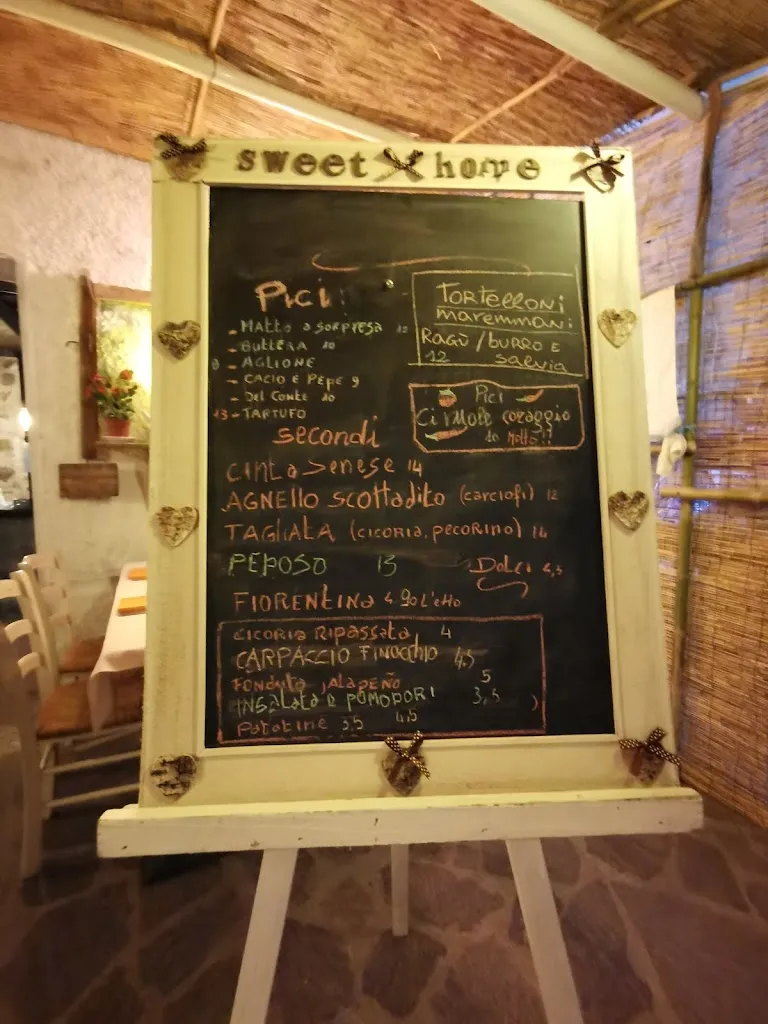 sweet home
Pici
- Matto a sorpresa 12
- Buttera 10
8 - AGLIONE
- CACIO E PEPE 9
- Del Conte 10
13 - TARTUFO
TORTELLONI
maremmani
RAGÙ / BURRO E
12 salvia
Pici
Ci Vuole coraggio
secondi
CINTA Senese 14
AGNELLO SCOTTADITO (carciofi) 12
TAGLIATA (CICORIA, PECORINO) 14
PEPOSO 13
Dolci 4,5
FIORENTINA 4.90 L'etto
CICORIA RIPASSATA 4
CARPACCIO FINOCCHIO 4,5
FONDUTA JALAPEÑO 5
INSALATA E POMODORI 3,5
Patatine 3,5 4,5